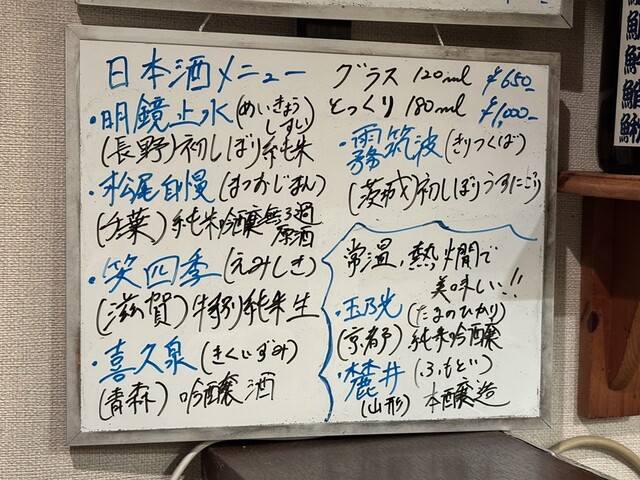 日本酒メニュー
グラス 120ml ¥650-
とっくり 180ml ¥1,000-
・明鏡止水(めいきょうしすい)
(長野)初しぼり純米
・松尾自慢(まつおじまん)
(千葉)純米吟醸無ろ過
原酒
・笑四季(えみしき)
(滋賀)特別純米生
・喜久泉(きくいずみ)
(青森)吟醸酒
・霧筑波(きりつくば)
(茨城)初しぼりうすにごり
常温、熱燗で
美味しい!!
・玉乃光(たまのひかり)
(京都)純米吟醸
・麓井(ふもとい)
(山形)本醸造